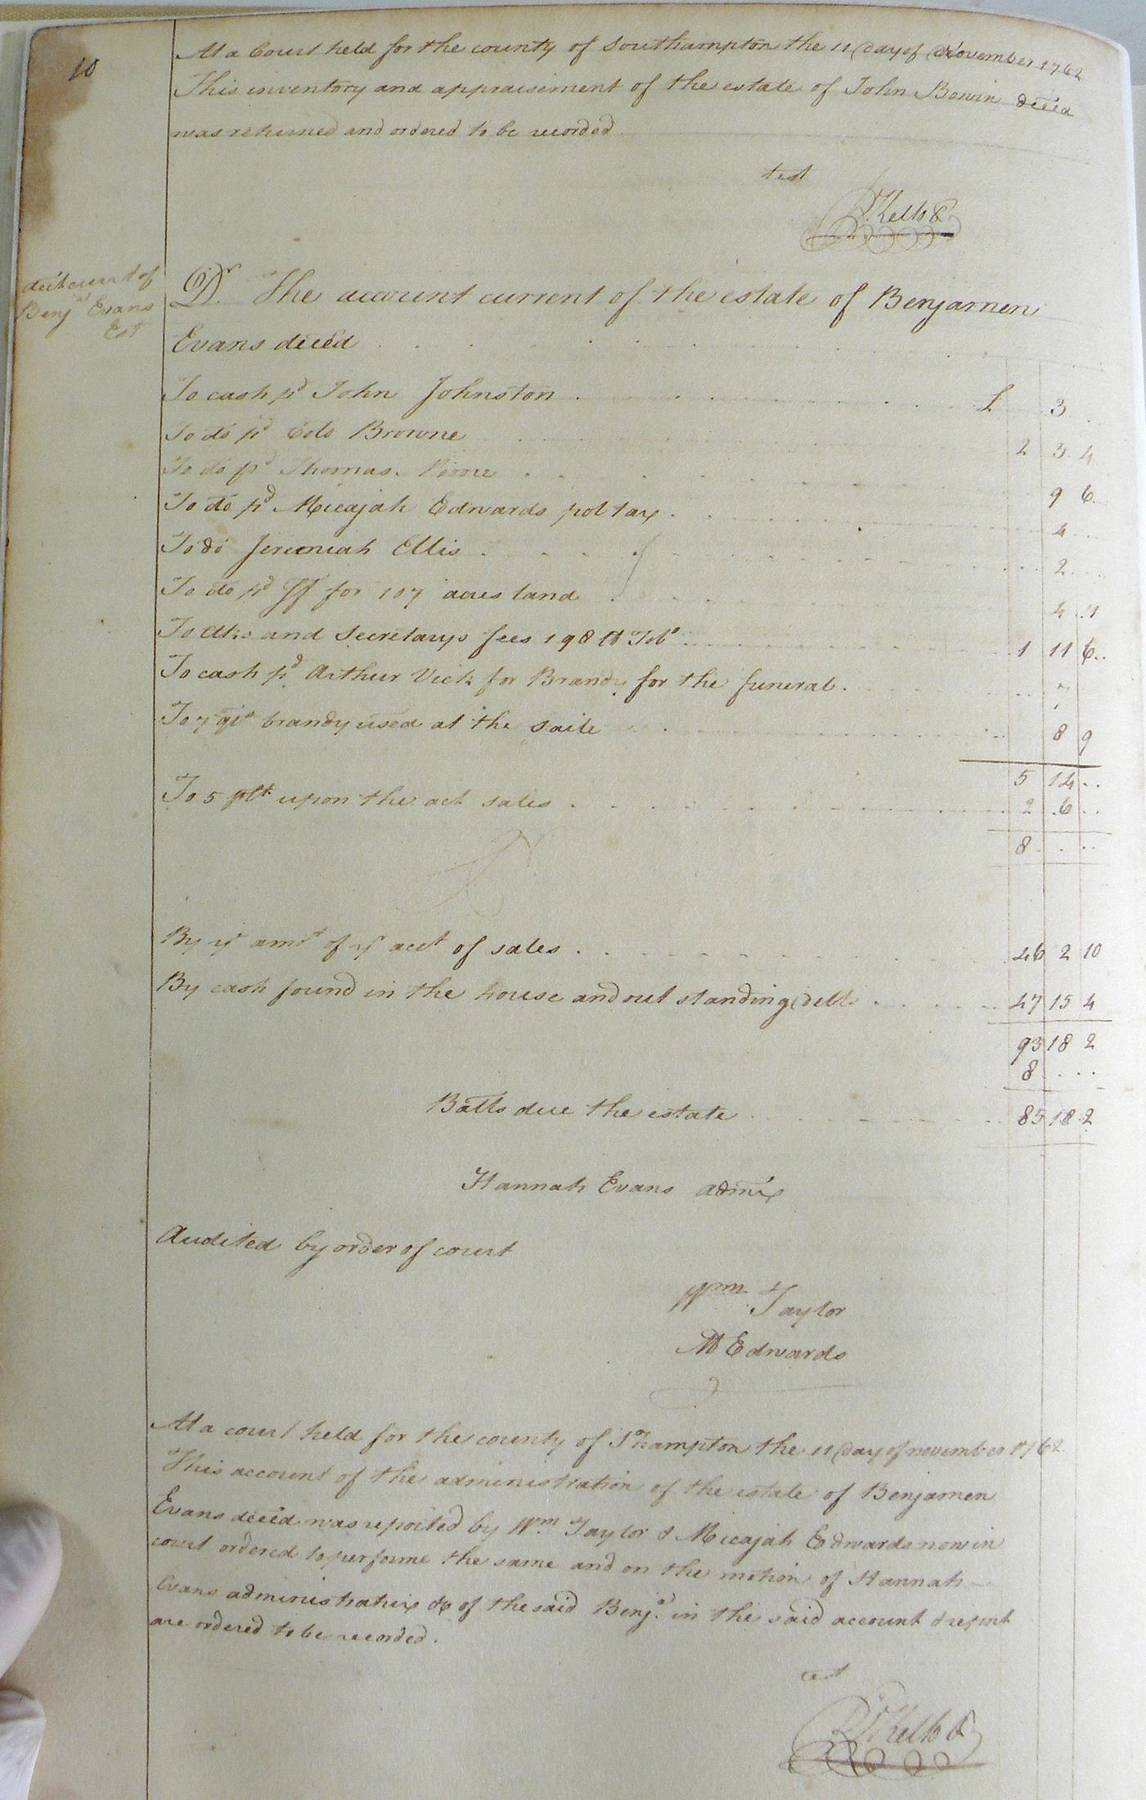 10
At a Court held for the county of Southampton the 11 Day of November 1762
This inventory and appraisement of the estate of John Bowin deced
was returned and ordered to be recorded
test
Kello
Account of
Benja Evans
Est
Dr. The account current of the estate of Benjamen
Evans deced
To cash pd John Johnston £ 3
To do pd Colo Browne 2 3 4
To do pd Thomas 9 6
To do pd Micajah Edwards pol tax 4
To do Jeremiah Ellis 2
To do pd for 107 acres land 4 11
To Clks and Secretarys fees 198 lb Tobo 1 11 6
To cash pd Arthur Vick for Brandy for the funeral 7
To 7 qts brandy used at the Saile 8 9
5 14
To 5 pCt upon the act sales 2 6
8
By ye amt of ye acct of sales 46 2 10
By cash found in the house and out standing Debts 47 15 4
93 18 2
8
Balls due the estate 85 18 2
Hannah Evans admix
Audited by order of court
Wm Taylor
M Edwards
At a court held for the county of SHampton the 11 Day of november 1762
This account of the administration of the estate of Benjamen
Evans deced was reported by Wm Taylor & Micajah Edwards now in
court ordered to performe the same and on the motion of Hannah
Evans administratrix &c of the said Benja in the said account & report
are ordered to be recorded.
test
Kello